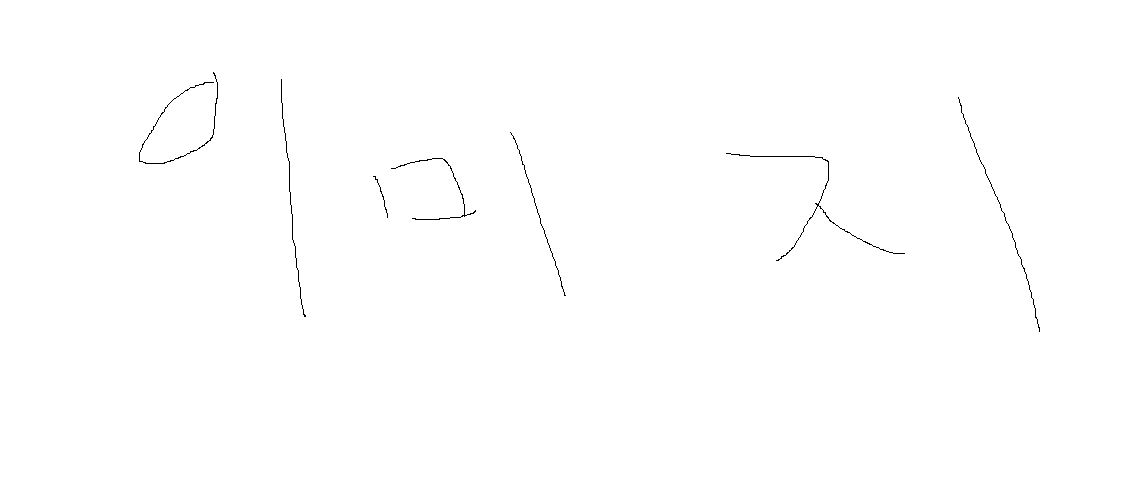 이미지